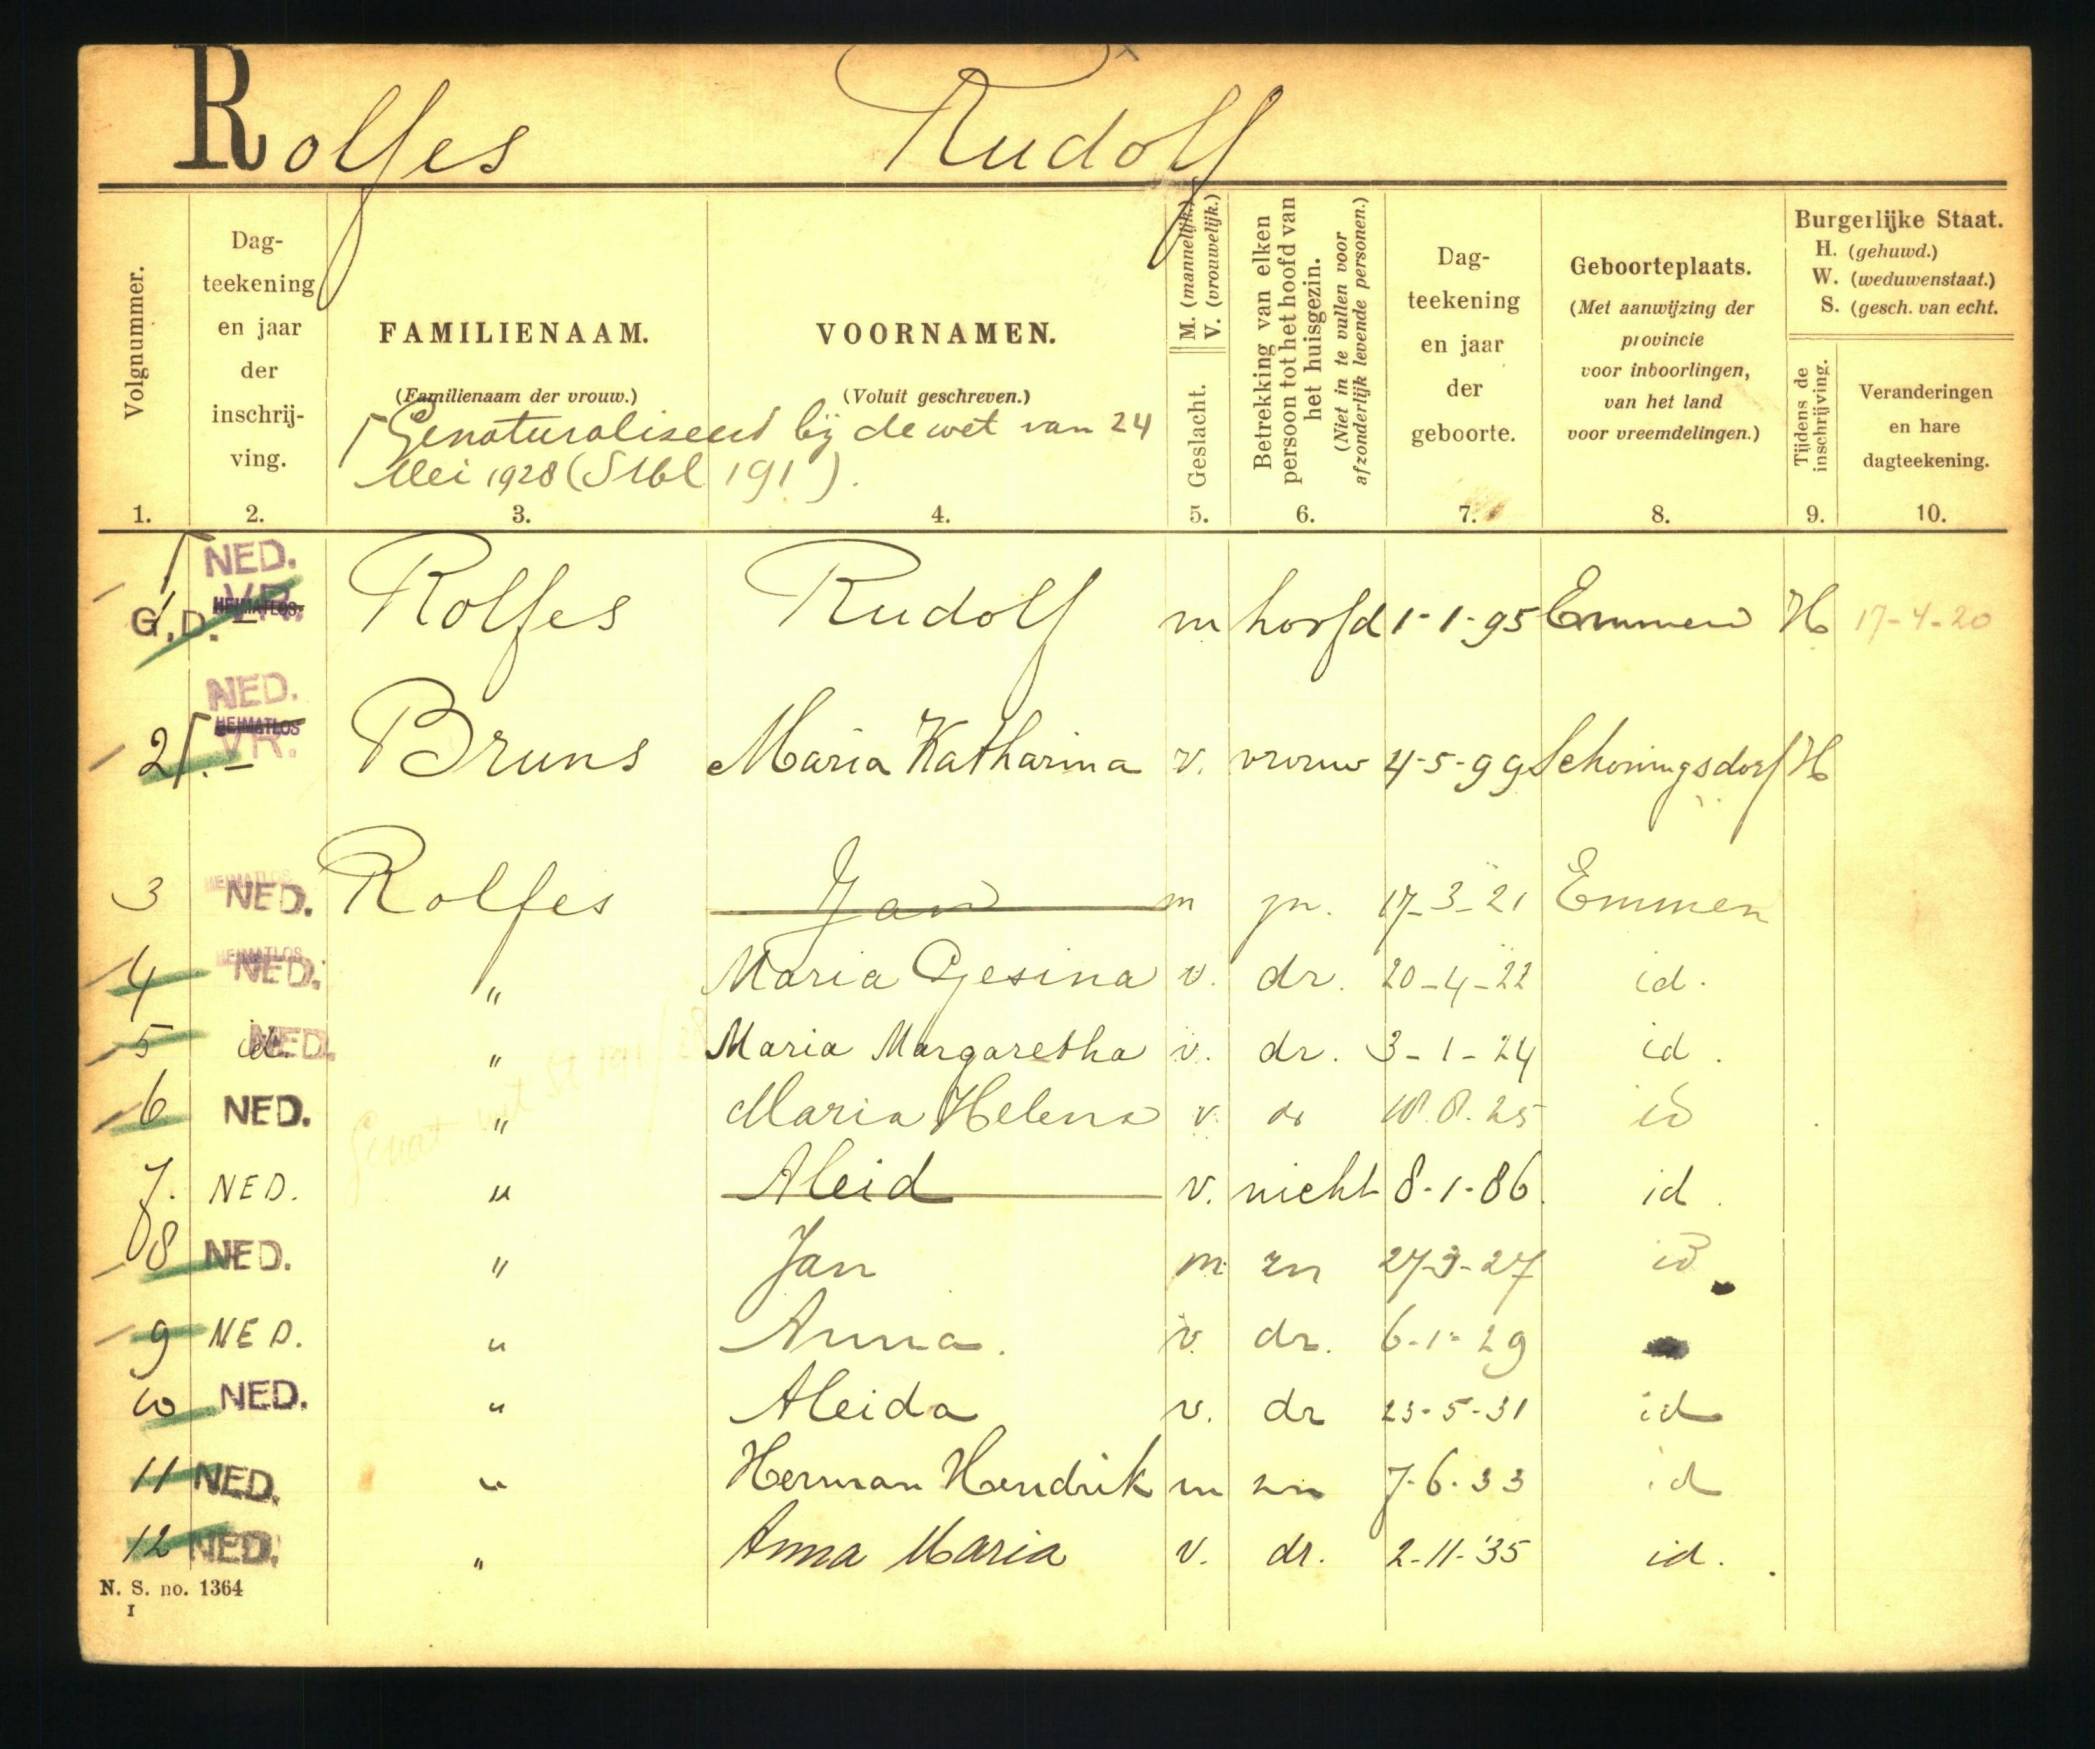 Rolfes Rudolf
Volgnummer.
Dag-
teekening
en jaar
der
inschrij-
ving.
FAMILIENAAM.
(Familienaam der vrouw.)
VOORNAMEN.
(Voluit geschreven.)
Genaturaliseerd bij de wet van 24
Mei 1928 (Stbl 191).
M. (mannelijk.)
V. (vrouwelijk.)
Geslacht.
Betrekking van elken
persoon tot het hoofd van
het huisgezin.
(Niet in te vullen voor
afzonderlijk levende personen.)
Dag-
teekening
en jaar
der
geboorte.
Geboorteplaats.
(Met aanwijzing der
provincie
voor inboorlingen,
van het land
voor vreemdelingen.)
Burgerlijke Staat.
H. (gehuwd.)
W. (weduwenstaat.)
S. (gesch. van echt.
Tijdens de
inschrijving.
Veranderingen
en hare
dagteekening.
1. 2. 3. 4. 5. 6. 7. 8. 9. 10.
NED.
VR.
HEIMATLOS
1 G.D. Rolfes Rudolf m hoofd 1-1-95 Emmen H 17-4-20
NED.
HEIMATLOS
VR.
2 Bruns Maria Katharina v. vrouw 4-5-99 Schoningsdorf H
HEIMATLOS
3 NED. Rolfes Jan m zn. 17-3-21 Emmen
HEIMATLOS
4 NED. " Maria Gesina v. dr. 20-4-22 id.
5 id. NED. " Maria Margaretha v. dr. 3-1-24 id.
6 NED. " Maria Helena v. dr 25 id
7. NED. " Aleid v. nicht 8-1-86. id.
8 NED. " Jan m zn 27-3-27 id
9 NED. " Anna. v. dr. 6-1-29
10 NED. " Aleida v. dr 23-5-31 id
11 NED. " Herman Hendrik m zn 7-6-33 id
12 NED. " Anna Maria v. dr. 2-11-'35 id.
N. S. no. 1364
I